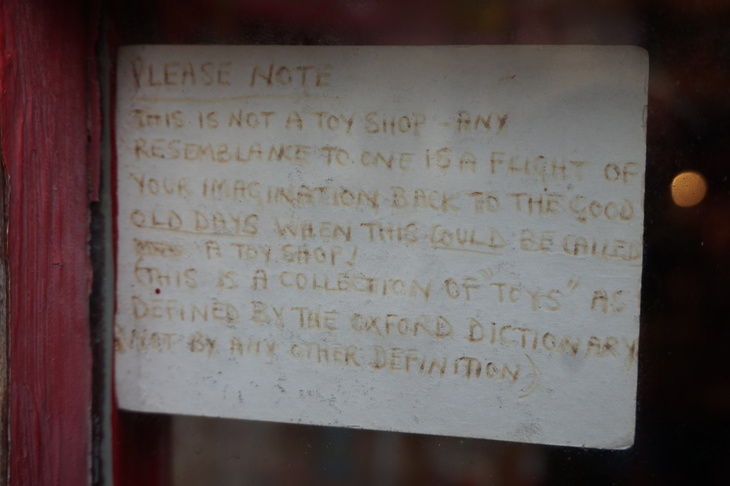 PLEASE NOTE
THIS IS NOT A TOY SHOP - ANY
RESEMBLANCE TO ONE IS A FLIGHT OF
YOUR IMAGINATION BACK TO THE GOOD
OLD DAYS WHEN THIS COULD BE CALLED
A TOY SHOP!
(THIS IS A COLLECTION OF "TOYS" AS
DEFINED BY THE OXFORD DICTIONARY
NOT BY ANY OTHER DEFINITION)